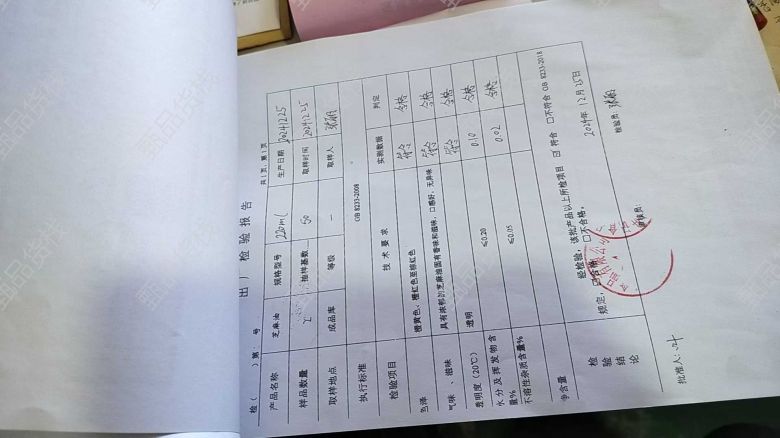 出厂检验报告
检（ ）第： 号
共1页，第1页
产品名称 芝麻油 规格型号 220ml 生产日期 20241225
样品数量 抽样基数 50 取样时间 20241225
取样地点 成品库 等级 — 取样人
执行标准 GB 8233-2008
检验项目 技术要求 实测数据 判定
色泽 橙黄色、橙红色至棕红色 符合 合格
气味、滋味 具有浓郁的芝麻油固有香味和滋味，口感好，无异味 符合 合格
透明度（20℃） 透明 符合 合格
水分及挥发物含量% ≤0.20 0.10 合格
不溶性杂质含量% ≤0.05 0.02 合格
净含量
检验结论
经检验，该批产品以上所检项目 ☑符合 □不符合 GB 8233-2018
规定，□合格 □不合格。
2024年12月25日
批准人： 审核员： 检验员：